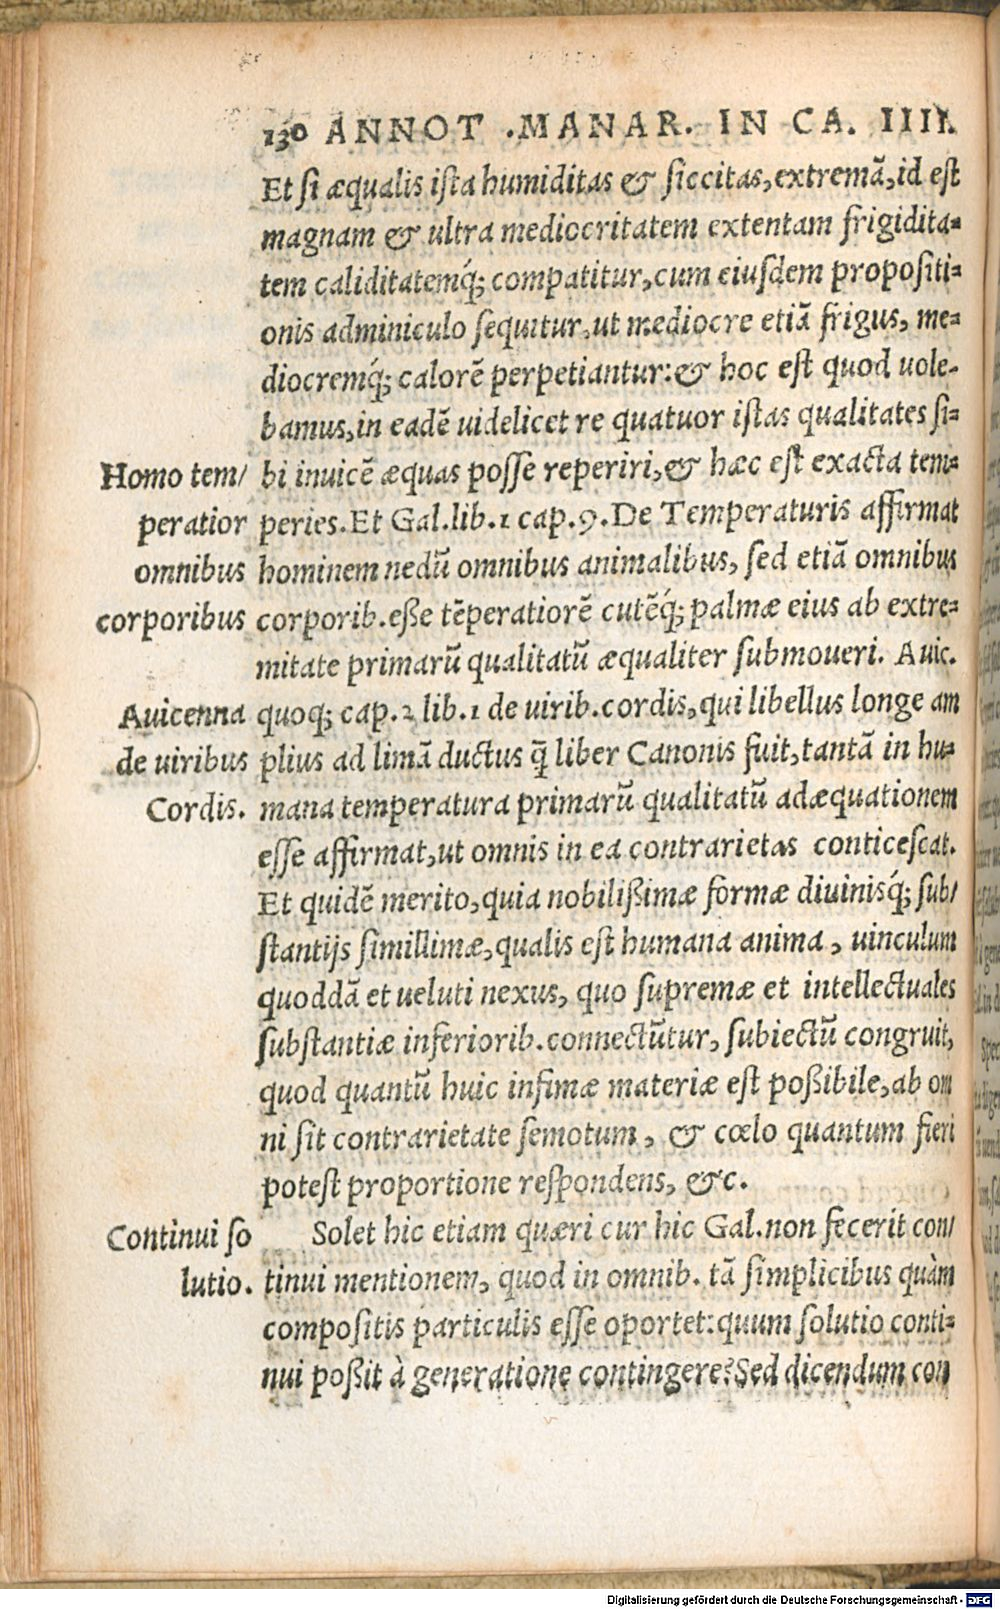 130 ANNOT .MANAR. IN CA. IIII.
Et si æqualis ista humiditas & siccitas,extremā,id est
magnam & ultra mediocritatem extentam frigidita-
tem caliditatemq́; compatitur,cum eiusdem propositi-
onis adminiculo sequitur,ut mediocre etiā frigus, me-
diocremq́; calorē perpetiantur:& hoc est quod uole-
bamus,in eadē uidelicet re quatuor istas qualitates si-
Homo tem/
bi inuicē æquas posse reperiri,& hæc est exacta tem-
peratior
peries.Et Gal.lib.1 cap.9.De Temperaturis affirmat
omnibus
hominem nedū omnibus animalibus, sed etiā omnibus
corporibus
corporib.eße tēperatiorē cutēq́; palmæ eius ab extre-
mitate primarū qualitatū æqualiter submoueri. Auic.
Auicenna
quoq; cap.2 lib.1 de uirib.cordis,qui libellus longe am
de uiribus
plius ad limā ductus q̄ liber Canonis fuit,tantā in hu-
Cordis.
mana temperatura primarū qualitatū adæquationem
esse affirmat,ut omnis in ea contrarietas conticescat.
Et quidē merito,quia nobilißimæ formæ diuinisq́; sub/
stantijs simillimæ,qualis est humana anima, uinculum
quoddā et ueluti nexus, quo supremæ et intellectuales
substantiæ inferiorib.connectūtur, subiectū congruit,
quod quantū huic infimæ materiæ est poßibile,ab om
ni sit contrarietate semotum, & cœlo quantum fieri
potest proportione respondens, &c.
Continui so
Solet hic etiam quæri cur hic Gal.non fecerit con/
lutio.
tinui mentionem, quod in omnib. tā simplicibus quàm
compositis particulis esse oportet:quum solutio conti-
nui poßit à generatione contingere?Sed dicendum con
Digitalisierung gefördert durch die Deutsche Forschungsgemeinschaft - DFG